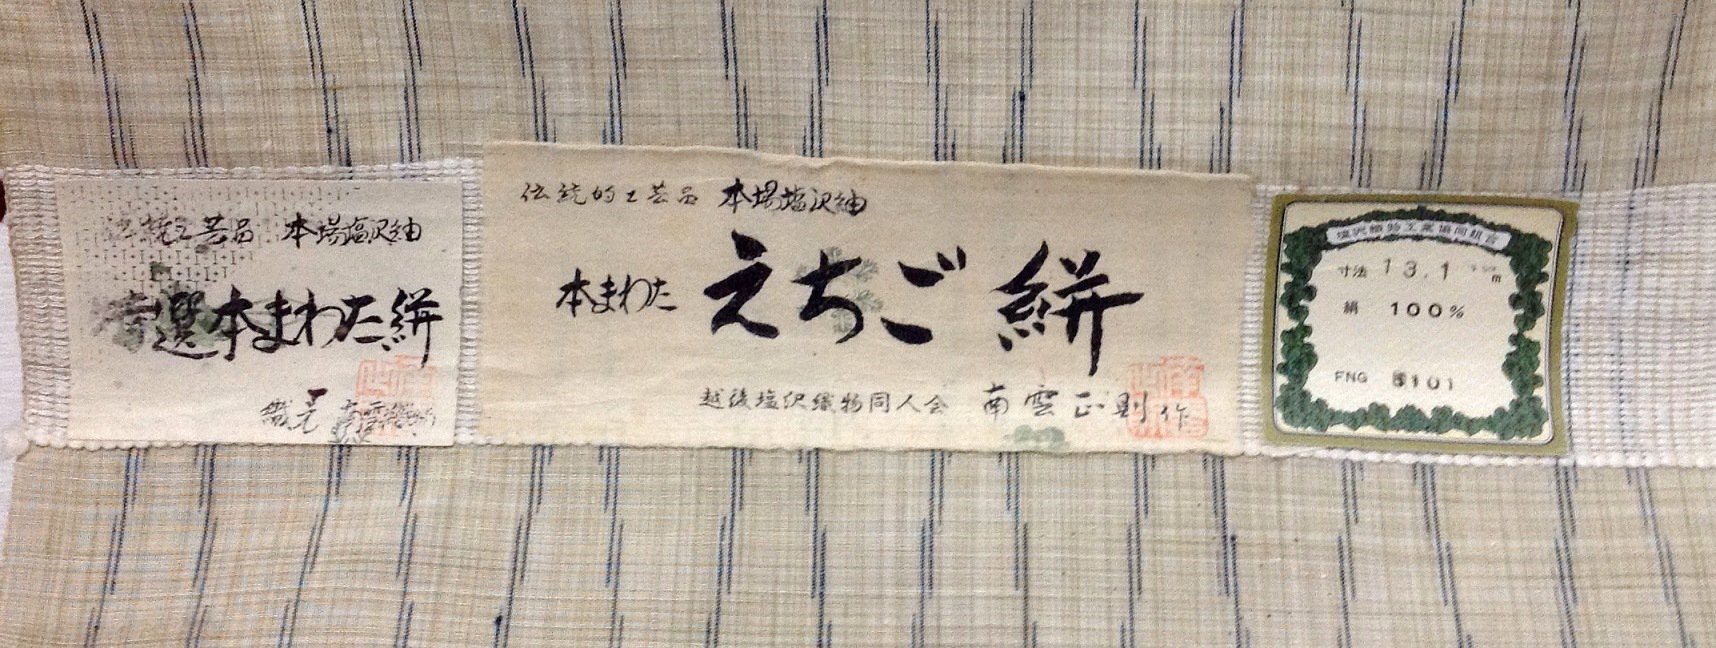 伝統工芸品 本場塩沢紬
特選本まわた絣
織元
伝統的工芸品 本場塩沢紬
本まわた えちご絣
越後塩沢織物同人会 南雲正則作
塩沢織物工業協同組合
寸法 13.1 m
絹 100%
FNG 5101